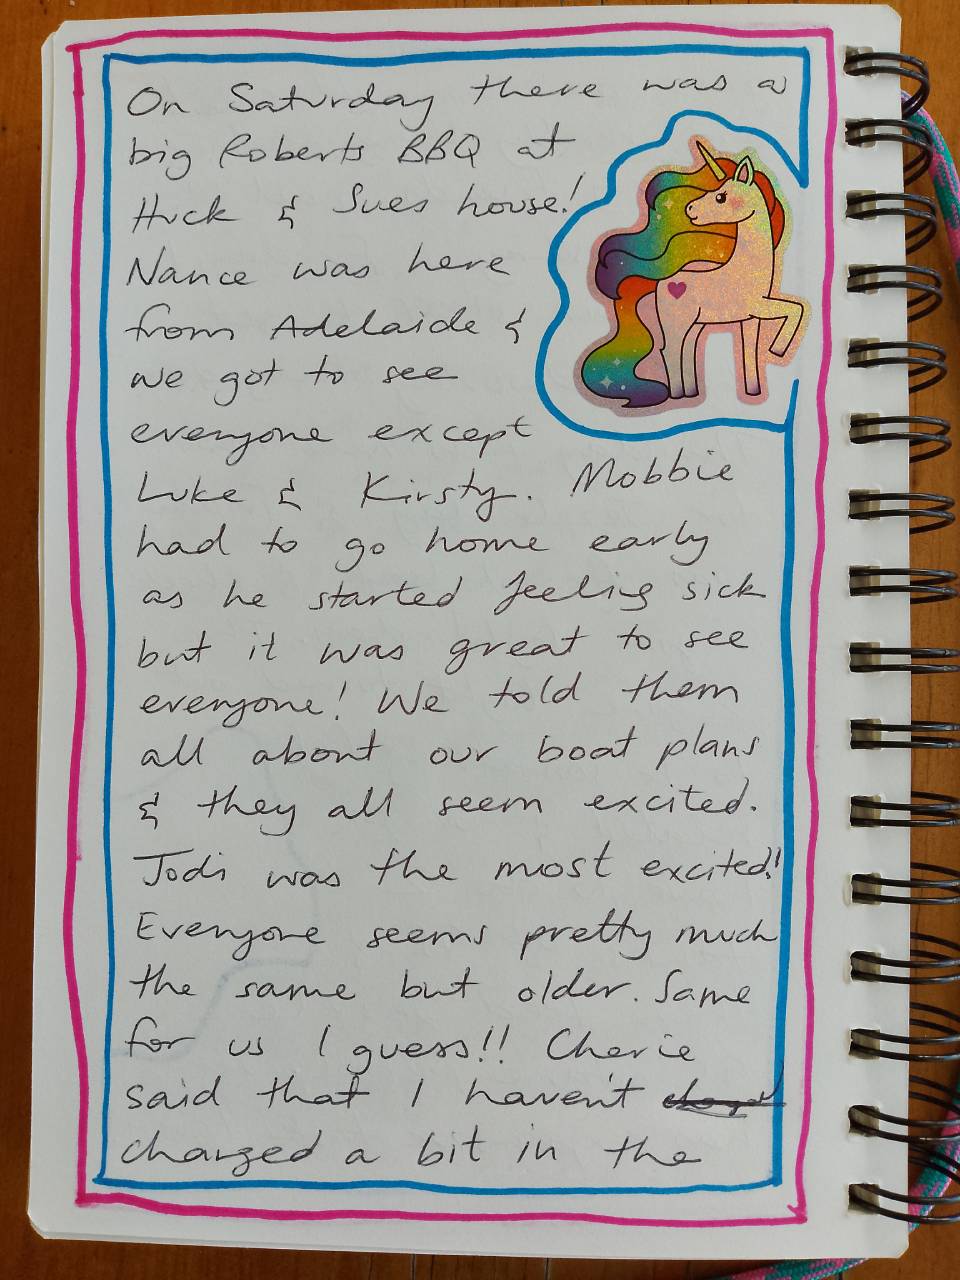 On Saturday there was a
big Roberts BBQ at
Huck & Sues house!
Nance was here
from Adelaide &
we got to see
everyone except
Luke & Kirsty. Mobbie
had to go home early
as he started feeling sick
but it was great to see
everyone! We told them
all about our boat plans
& they all seem excited.
Jodi was the most excited!
Everyone seems pretty much
the same but older. Same
for us I guess!! Cherie
said that I haven't
changed a bit in the